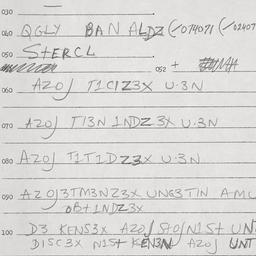 030
040 QGLY BAN ALDZ (/074071 (/02407
050 STERCL
052 +
060 AZOJ T1C1Z3X U.3N
070 AZOJ T13N 1NDZ3X U.3N
080 AZOJ T1T1DZ3X U.3N
090 AZOJ3TM3NZ3X UNG3TIN AMU
OB+1NDZ3X
100 D3 KENS3X AZOJ N1S+ UNT
D1SC3X N1S+ KEN3N AZOJ UNT